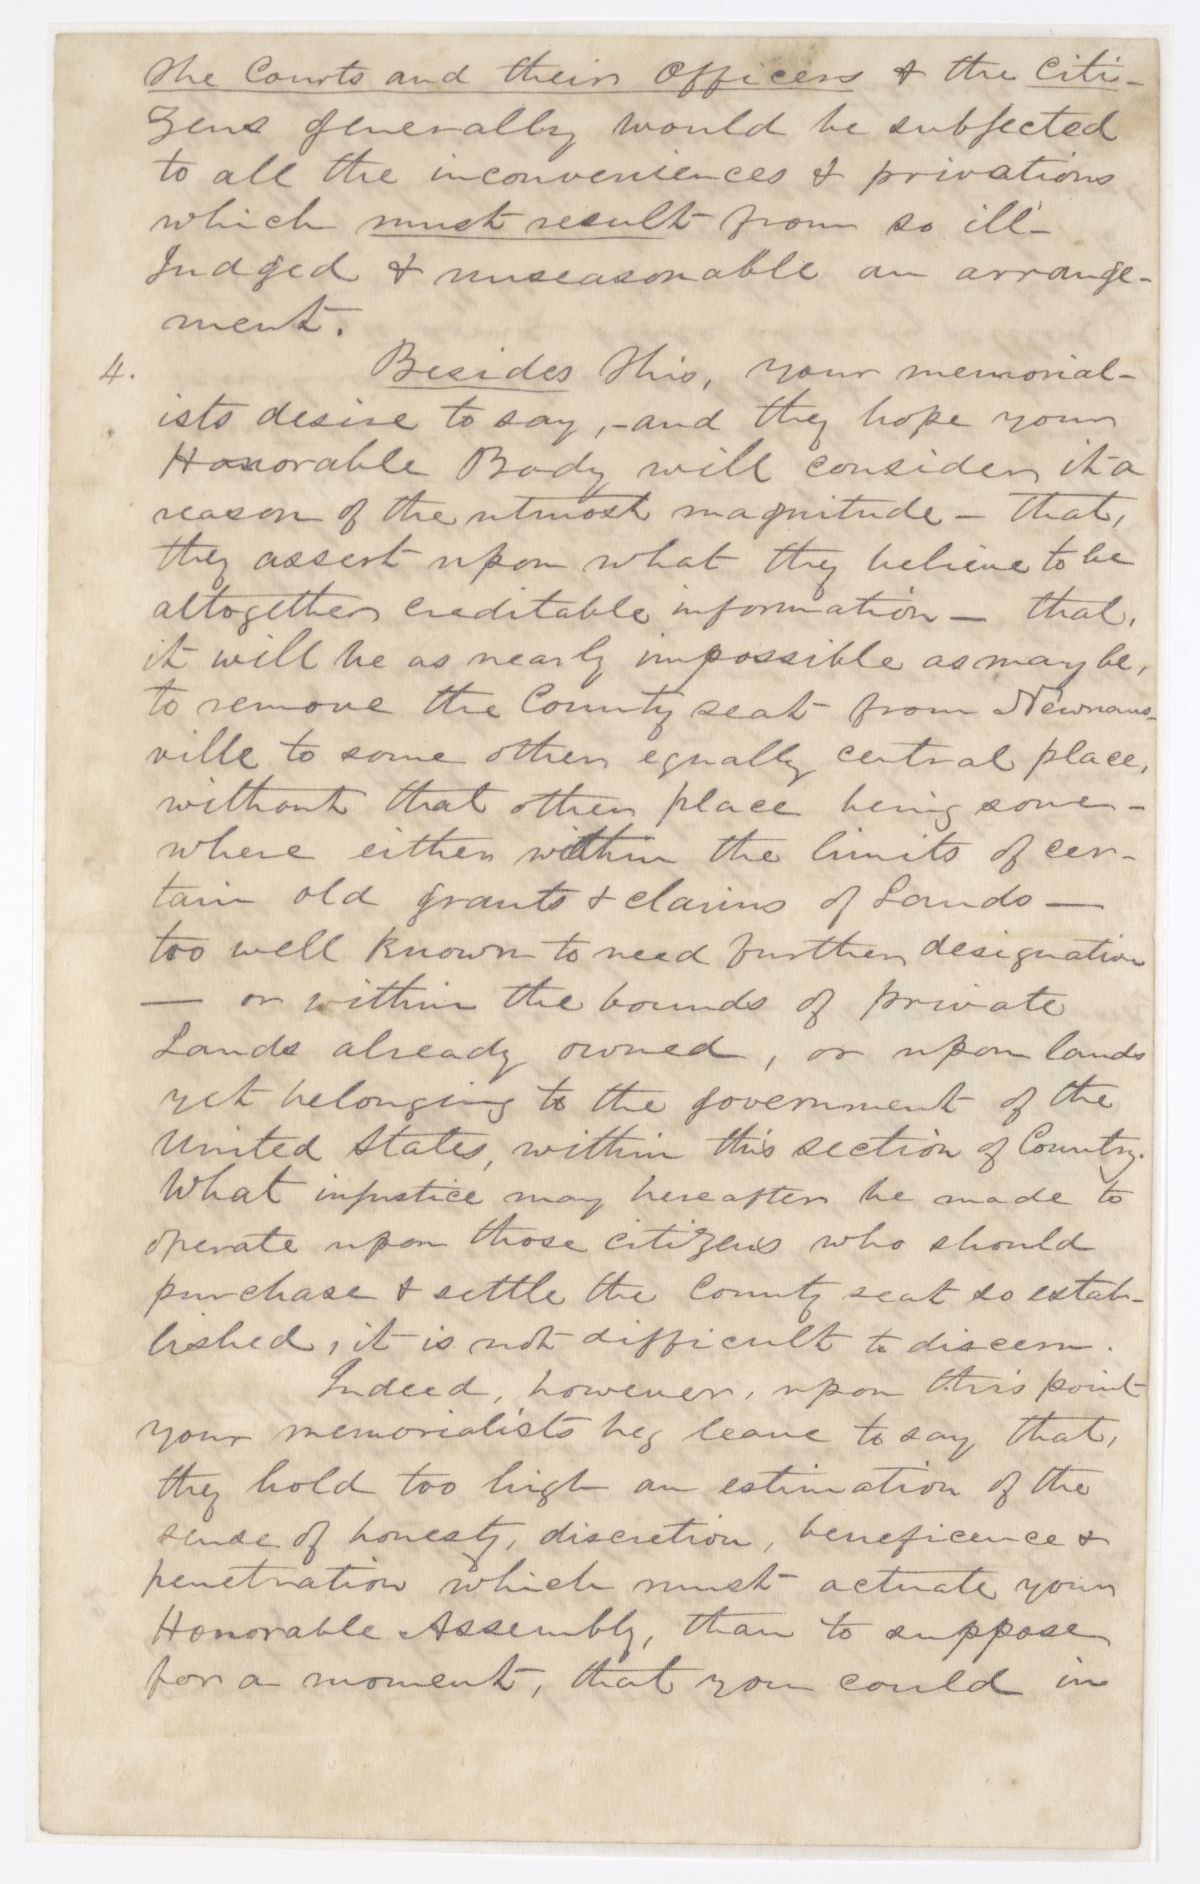 The Courts and their Officers & the Citi-
zens generally would be subjected
to all the inconveniences & privations
which must result from so ill-
Judged & unseasonable an arrange-
ment.
4. Besides this, your memorial-
ists desire to say, - and they hope your
Honorable Body will consider it a
reason of the utmost magnitude - that,
they assert upon what they believe to be
altogether creditable information - that,
it will be as nearly impossible as may be,
to remove the County seat from Newnans-
ville to some other equally central place,
without that other place being some-
where either within the limits of cer-
tain old grants & claims of Lands —
too well known to need further designation
— or within the bounds of private
Lands already owned, or upon lands
yet belonging to the government of the
United States, within this section of Country.
What injustice may hereafter be made to
operate upon those citizens who should
purchase & settle the County seat so estab-
lished, it is not difficult to discern.
Indeed, however, upon this point
your memorialists beg leave to say that,
they hold too high an estimation of the
sense of honesty, discretion, beneficence &
penetration which must actuate your
Honorable Assembly, than to suppose
for a moment, that you could in